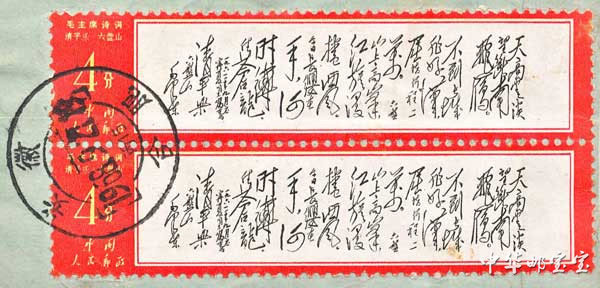 毛主席诗词
清平乐 六盘山
4分
中国
人民邮政
天高云淡
望断南
飞雁
不到长城
非好汉
屈指行程二
万 六盘
山上高峰
红旗漫
卷西风
今日长缨在
手 何
时缚住
苍龙
清平乐
六盘山
毛泽东
4分
中国
人民邮政
天高云淡
望断南
飞雁
不到长城
非好汉
屈指行程二
万 六盘
山上高峰
红旗漫
卷西风
今日长缨在
手 何
时缚住
苍龙
清平乐
六盘山
毛泽东
安徽
1968
中华邮宝宝